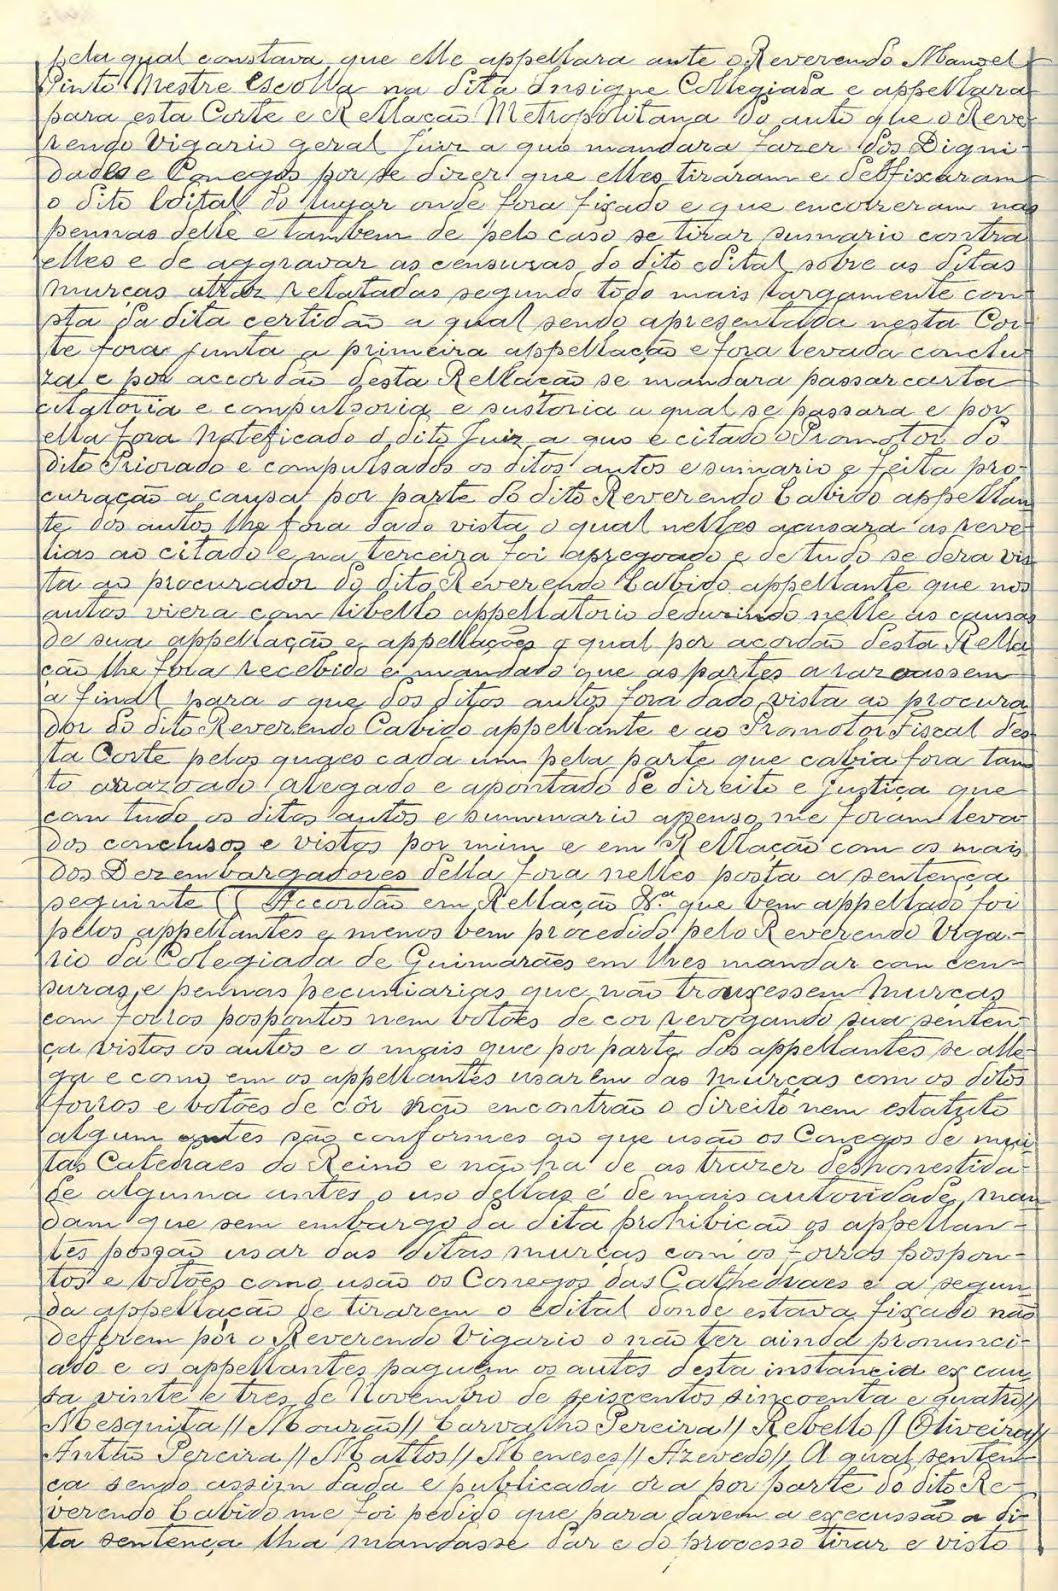 pela qual constava que elle appellara ante o Reverendo Manoel
Pinto Mestre Escolla na dita Insigne Collegiada e appellara
para esta Corte e Rellação Metropolitana do auto que o Reve-
rendo Vigario geral Juiz a quo mandara fazer dos Digni-
dades e Conegos por se dizer que elles tiráram e deffixaram
o dito Edital do lugar onde fora fixado e que encorreram nas
pennas delle e tambem de pelo caso se tirar sumario contra
elles e de aggravar as censuras do dito edital sobre as ditas
murcas atraz relatadas segundo todo mais largamente con-
sta da dita certidão a qual sendo apresentada nesta Cor-
te fora junta a primeira appellação e fora levada conclu-
za e por accordão desta Rellação se mandara passar carta
citatoria e compulsoria e sustoria a qual se passara e por
ella fora noteficado o dito Juiz a quo e citado o Promotor do
dito Priorado e compulsados os ditos autos e sumario e feita pro-
curação a causa por parte do dito Reverendo Cabido appellan-
te dos autos lhe fora dado vista o qual nelles acusara as reve-
lias ao citado e na terceira foi apregoado e de tudo se dera vis-
ta ao procurador do dito Reverendo Cabido appellante que nos
autos viera com libello appellatorio deduzindo nelle as causas
de sua appellação e appellações o qual por acordão desta Rella-
ção lhe fora recebido e mandado que as partes arazoassem
a final para o que dos ditos autos fora dado vista ao procura
dor do dito Reverendo Cabido appellante e ao Promotor Fiscal des-
ta Corte pelos quaes cada um pela parte que cabia fora tan-
to arrazoado alegado e apontado de direito e justiça que
com tudo os ditos autos e summario apenso me foram leva-
dos conclusos e vistos por mim e em Rellação com os mais
dos Dezembargadores della fora nelles posta a sentença
seguinte (( Accordão em Rellação &ª que bem appellado foi
pelos appellantes e menos bem procedido pelo Reverendo Viga-
rio da Colegiada de Guimarães em lhes mandar com cen-
suras e pennas pecuniarias que não trouxessem murcas
com forros pospontos nem botões de cor revogando sua senten-
ça vistos os autos e o mais que por parte dos appellantes se alle-
ga e como em os appellantes usarem das murcas com os ditos
forros e botões de côr não encontrão o direito nem estatuto
algum antes são conformes ao que usão os Conegos de mui-
tas Catedraes do Reino e não ha de as trazer deshonestida-
de alguma antes o uso dellas é de mais autoridade man-
dam que sem embargo da dita prohibicão os appellan-
tes possão usar das ditas murcas com os forros pospon-
tos e botões como usão os Conegos das Cathedraes e a segun-
da appellação de tirarem o edital donde estava fixado não
deferem por o Reverendo Vigario o não ter ainda pronunci-
ado e os appellantes paguem os autos desta instancia ex cau-
sa vinte e tres de Novembro de seiscentos sincoenta e quatro//
Mesquita // Mourão // Carvalho Pereira // Rebello // Oliveira//
Antão Pereira // Mattos // Meneses // Azevedo // A qual senten-
ca sendo assim dada e publicada ora por parte do dito Re-
verendo Cabido me foi pedido que para darem a execussão a di-
ta sentença lha mandasse dar e do processo tirar e visto